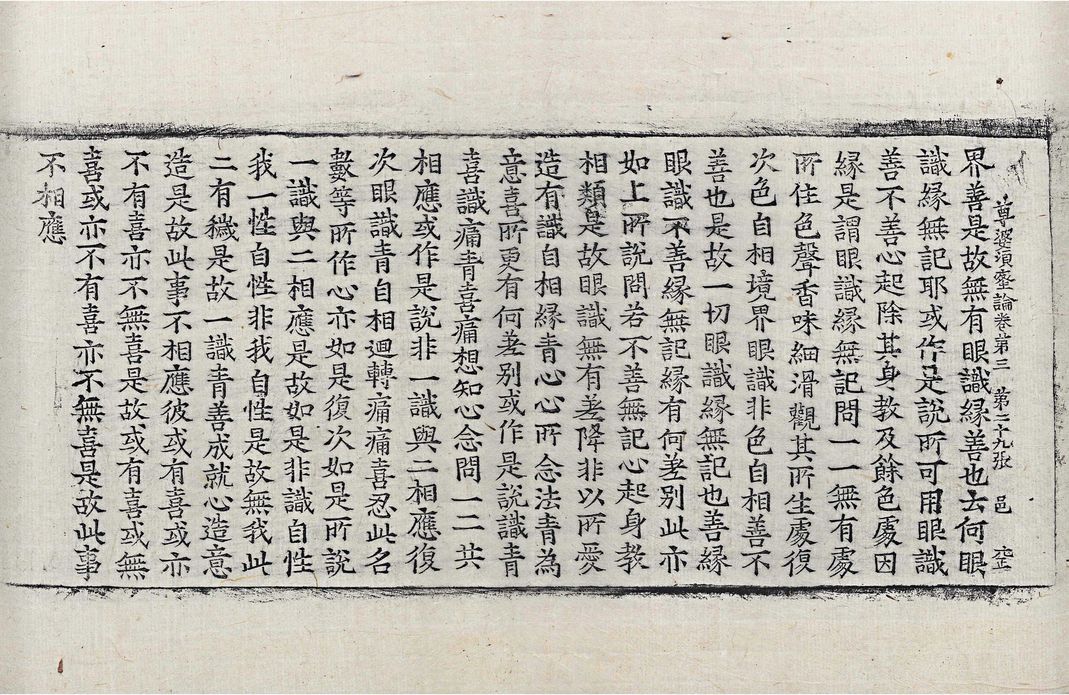 尊婆須蜜論卷第三　第二十九張　邑
界善是故無有眼識緣善也去何眼
識緣無記耶或作是說所可用眼識
善不善心起除其身教及餘色處因
緣是謂眼識緣無記問一一無有處
所住色聲香味細滑觀其所生處復
次色自相境界眼識非色自相善不
善也是故一切眼識緣無記也善緣
眼識不善緣無記緣有何差別此亦
如上所說問若不善無記心起身教
相類是故眼識無有差降非以所愛
造有識自相緣青心心所念法青為
意喜所更有何差別或作是說識青
喜識痛青喜痛想知心念問一二共
相應或作是說非一識與二相應復
次眼識青自相迴轉痛痛喜忍此名
數等所作心亦如是復次如是所說
一識與二相應是故如是非識自性
我一性自性非我我自性是故無我此
二有穢是故一識青善成就心造意
造是故此事不相應彼或有喜或亦
不有喜亦不無喜是故或有喜或無
喜或亦不有喜亦不無喜是故此事
不相應